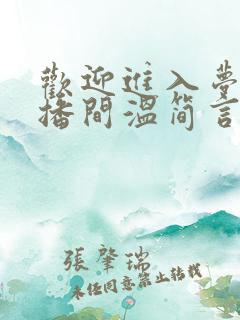 歡迎進入夢
播間溫简言
張肇瑞
未经同意禁止转载